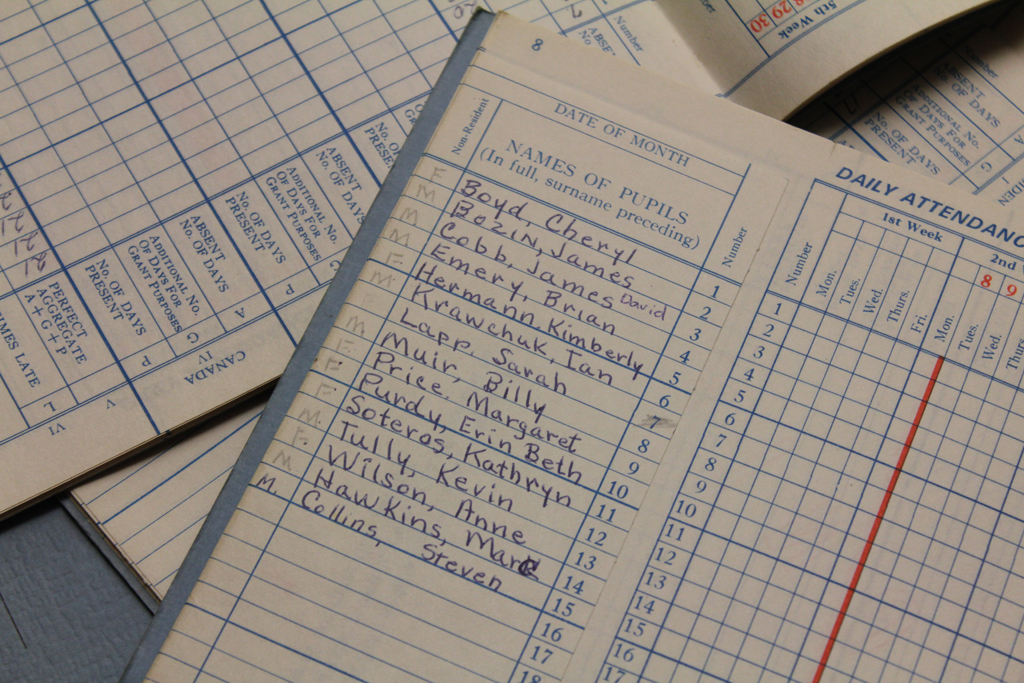 8
DATE OF MONTH
Non-Resident
NAMES OF PUPILS
(In full, surname preceding)
Number
F Boyd, Cheryl 1
M Bozin, James 2
M Cobb, James David 3
M Emery, Brian 4
F Hermann, Kimberly 5
M Krawchuk, Ian 6
Lapp, Sarah 7
M Muir, Billy 8
F. Price, Margaret 9
F. Purdy, Erin Beth 10
F. Soteros, Kathryn 11
M. Tully, Kevin 12
F. Wilson, Anne 13
M. Hawkins, Marc 14
M. Collins, Steven 15
16
17
18
DAILY ATTENDANC
1st Week
2nd
8 9
Number
Mon.
Tues.
Wed.
Thurs.
Fri.
Mon.
Tues.
Wed.
Thurs
1
2
3
4
5
6
7
8
9
10
11
12
13
14
15
16
17
5th Week
28 29 30
Number
ABSENT
No. OF DAYS
ADDITIONAL No.
OF DAYS FOR
GRANT PURPOSES
G
No. OF DAYS
PRESENT
Number
ABSE
ABSENT
No. OF DAYS
ADDITIONAL No.
OF DAYS FOR
GRANT PURPOSES
G
No. OF DAYS
PRESENT
P
ABSENT
No. OF DAYS
A
ADDITIONAL No.
OF DAYS FOR
GRANT PURPOSES
G
No. OF DAYS
PRESENT
P
PERFECT
AGGREGATE
A + G + P
TIMES LATE
L
CANADA
IV
V
VI